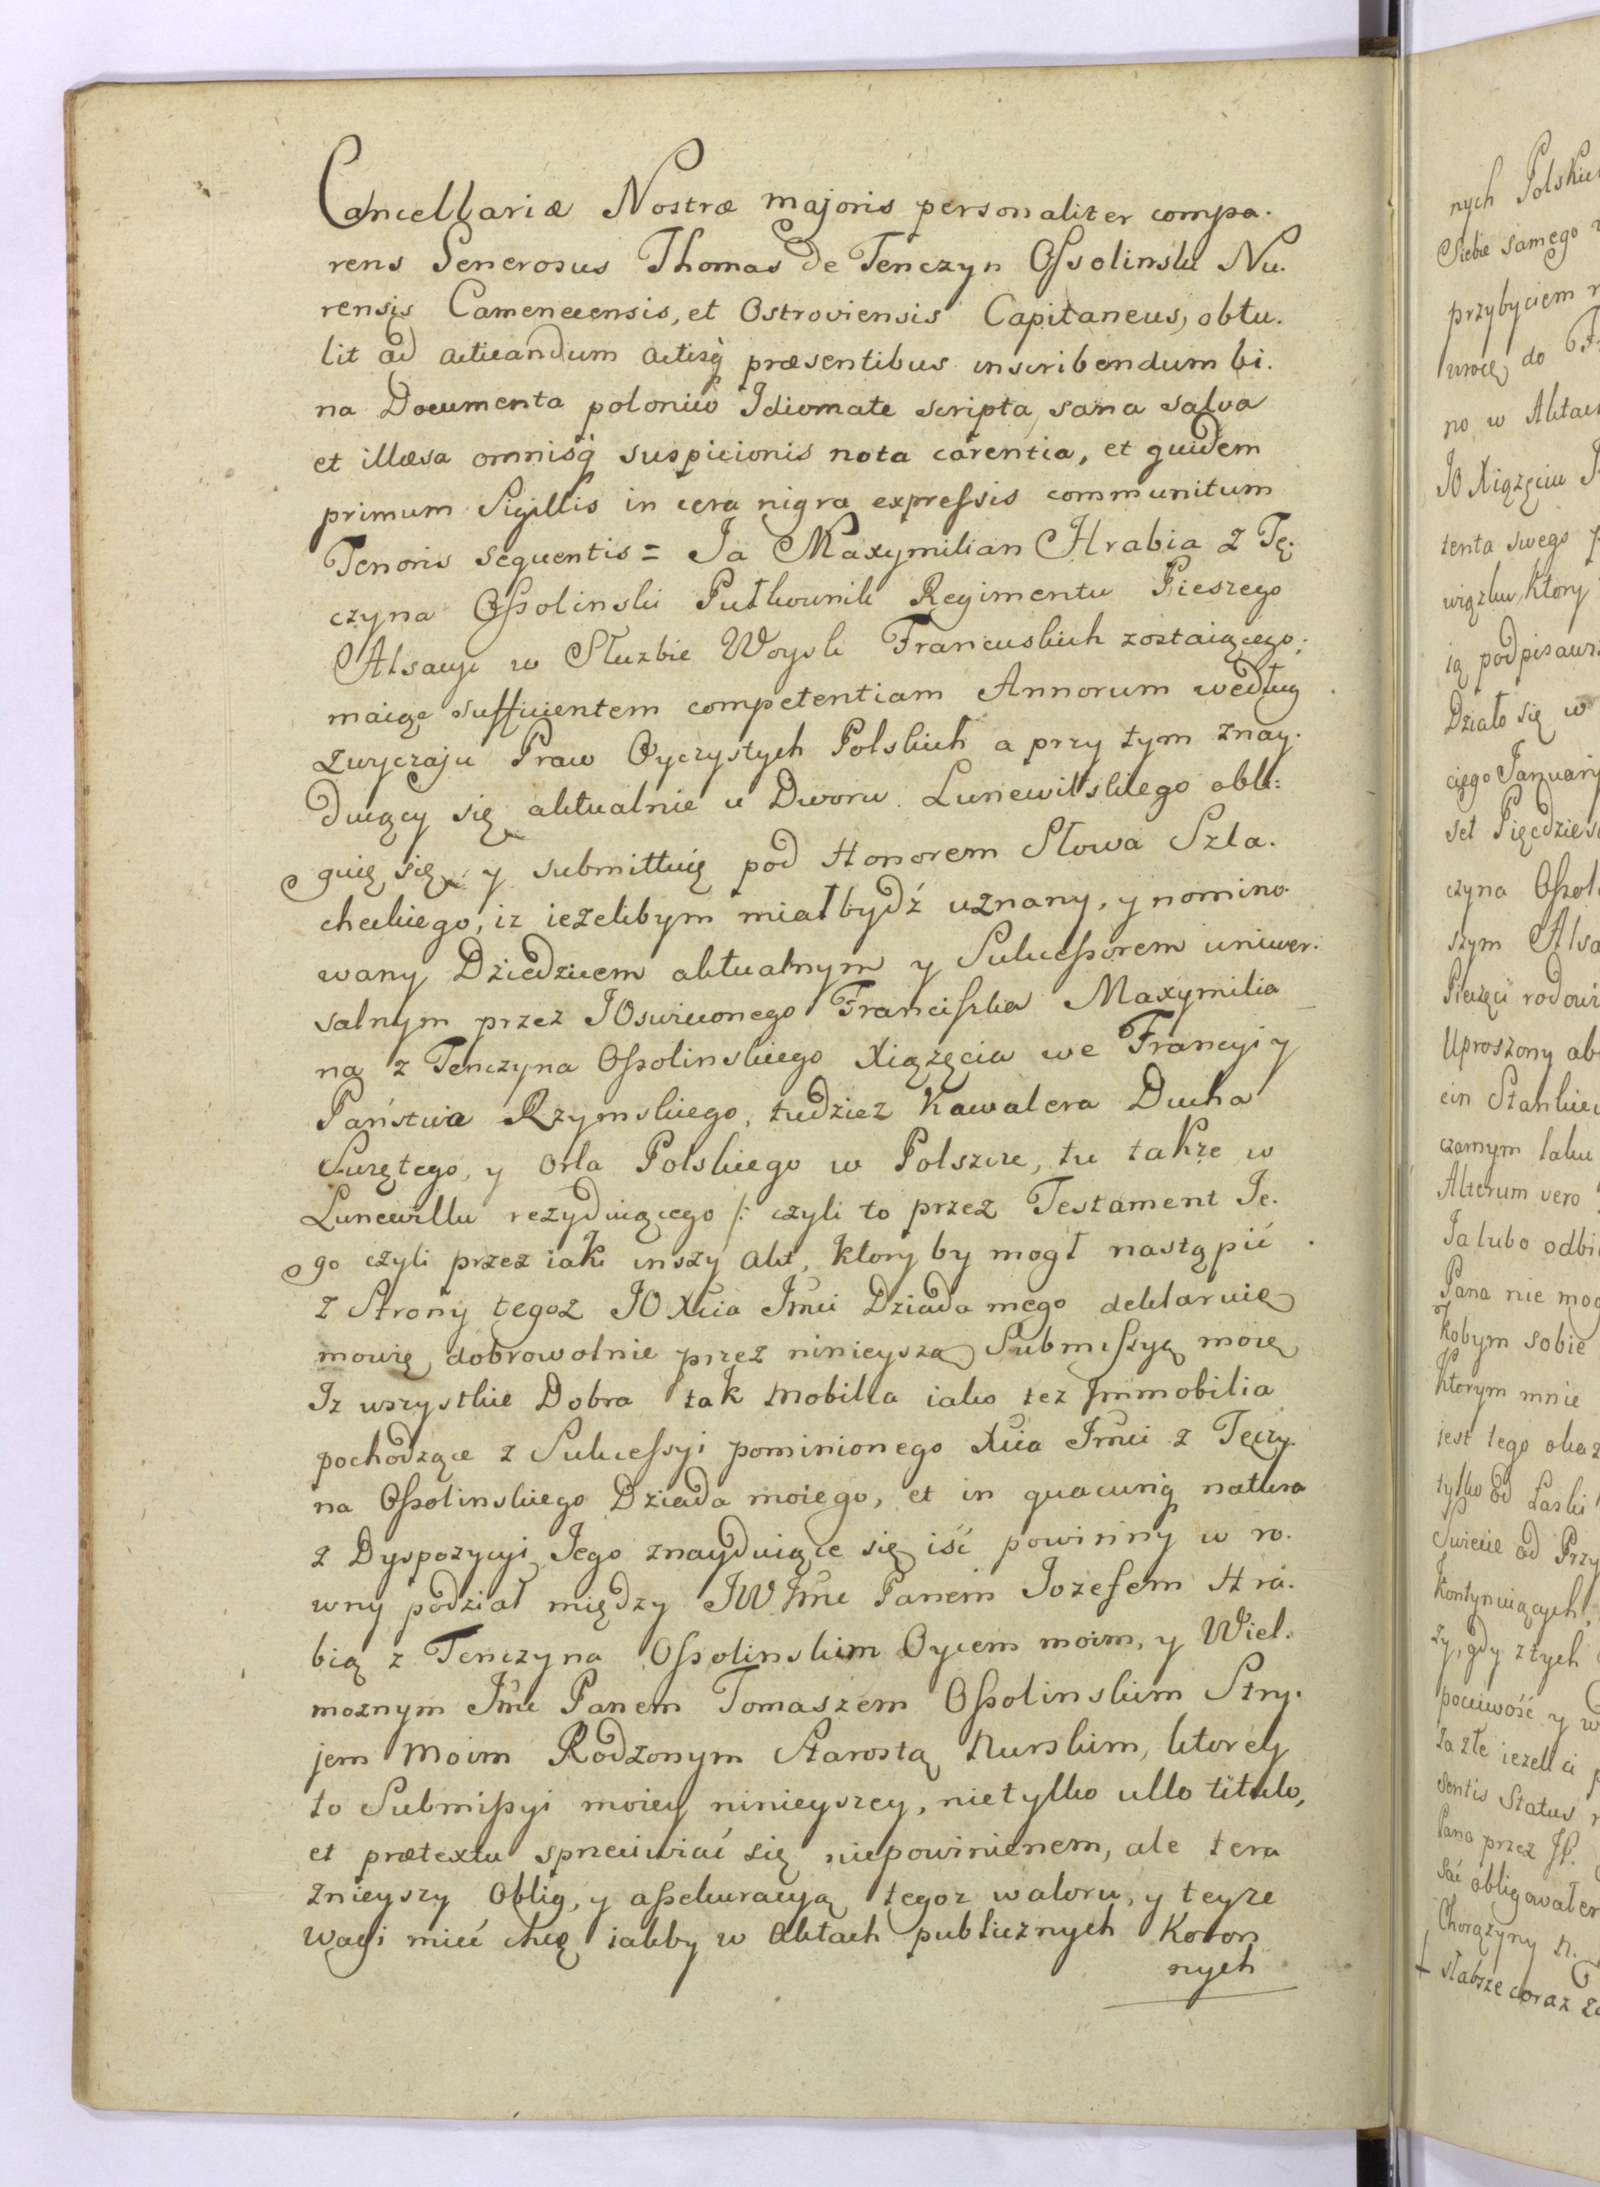 Cancellariæ Nostræ majoris personaliter compa.
rens Generosus Thomas de Tenczyn Ossolinski Nu.
rensis Camenecensis, et Ostroviensis Capitaneus, obtu.
lit ad acticandum actisq præsentibus inscribendum bi.
na Documenta polonico Idiomate scripta, sana salva
et illæsa omnisq suspicionis nota carentia, et quidem
primum Sigillis in cera nigra expressis communitum
Tenoris sequentis = Ja Maxymilian Hrabia z Tę.
czyna Ossolinski Pułkownik Regimentu Pieszego
Alsacyi w Służbie Woysk Francuskich zostaiącego;
maiąc sufficientem competentiam Annorum według
zwyczaju Praw Oyczystych Polskich a przy tym znay.
duiący się aktualnie u Dworu Lunewilskiego obli:
guię się y submittuię pod Honorem Słowa Szla.
checkiego, iz ieżelibym miał bydź uznany, y nomino.
wany Dziedzicem aktualnym y Sukcessorem uniwer.
salnym przez JOswieconego Franciszka Maxymilia
na z Tenczyna Ossolinskiego Xiążęcia we Francyi y
Państwa Rzymskiego, tudziez Kawalera Ducha
Swiętego, y Orła Polskiego w Polszcze, tu także w
Lunewillu rezyduiącego /: czyli to przez Testament Je.
go czyli przez iaki inszy akt, ktory by mogł nastąpić
z Strony tegoz JO Xcia Jmci Dziada mego deklaruię
mowię dobrowolnie przez ninieyszą Submissyą moię
Iz wszystkie Dobra tak Mobilia iako tez Immobilia
pochodzące z Sukcessyi pominionego Xcia Jmci z Tęczy.
na Ossolinskiego Dziada moiego, et in quacunq natura
z Dyspozycyi Jego znayduiące się iść powinny w ro.
wny podział między JW Jmc Panem Jozefem Hra.
bią z Tenczyna Ossolinskim Oycem moim, y Wiel.
moznym Jmc Panem Tomaszem Ossolinskim Stry.
jem Moim Rodzonym Starostą Nurskim, ktorey
to Submissyi moiey ninieyszey, nie tylko ullo titulo,
et prætextu sprzeciwiać się niepowinienem, ale tera
znieyszy Oblig, y assekuracyą tegoz waloru, y teyze
wagi mieć chcę iakby w Aktach publicznych Koron
nych
nych Polskich
Siebie samego
przybyciem
wrocę do
no w Aktach
JO Xiążęciu
tenta swego
wiązku, ktory
ią podpisaws
Działo się w
cięgo January
set Pięcdzies
czyna Ossol
szym Alsa
Pieczęci rodowi
Uproszony
ein Stankiew
czarnym laku
Alterum vero
Ja lubo odbi
Pana nie mog
kobym sobie
Ktorym mnie
iest tego okaz
tylko od Łaski
Swiecie od Przy
Kontynuiących
zy, gdy z tych
poczciwość y w
za złe iezeli ci
sentis Status
Pana przez JP.
sać obligowałem
Chorązyny N.
słabsze coraz